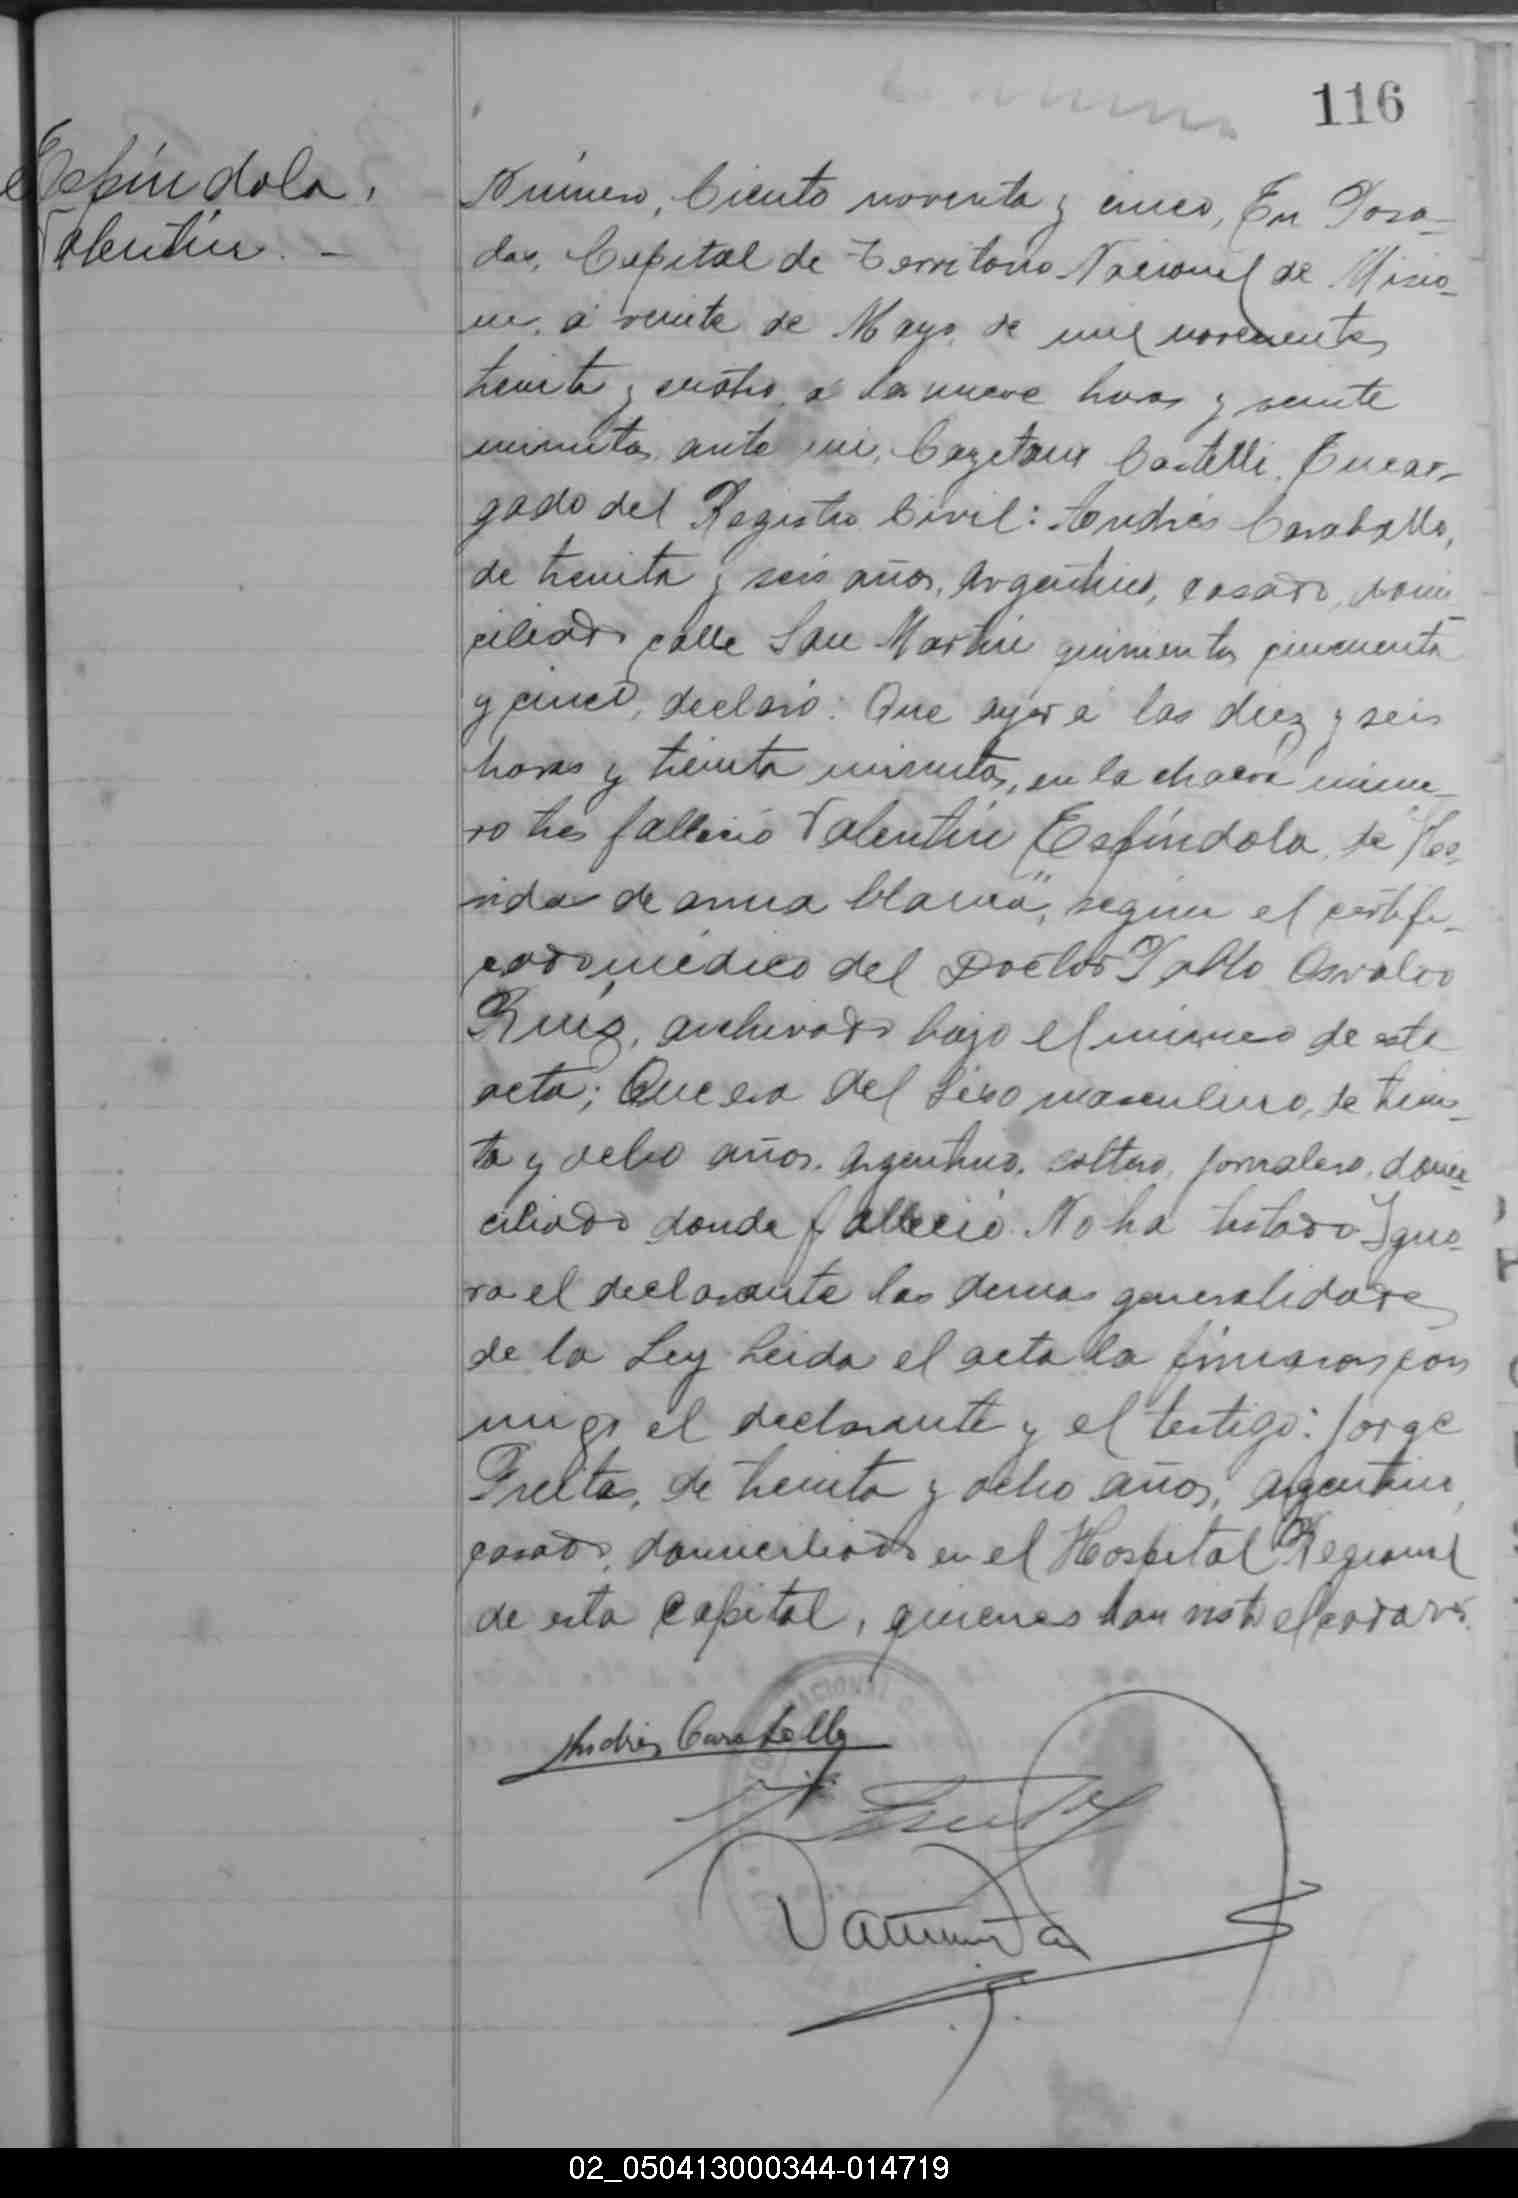 116
Espíndola,
Valentín. -
Número, Ciento noventa y cinco, En Posa-
das, Capital de Territorio Nacional de Misio-
nes, á veinte de Mayo, de mil novecientos
treinta y cuatro, á las nueve horas y veinte
minutos, ante mi, Cayetano Castelli, Encar-
gado del Registro Civil: Andrés Caraballo,
de treinta y seis años, argentino, casado, domi-
ciliado calle San Martín quinientos cincuenta
y cinco, declaró: Que ayer á las diez y seis
horas y treinta minutos, en la chacra núme-
ro tres falleció Valentín Espíndola, de "He-
ridas de arma blanca", según el certifi-
cado médico del Doctor Pablo Osvaldo
Ruiz, archivado bajo el número de este
acta; Que era del sexo masculino, de trein-
ta y ocho años, argentino, soltero, jornalero, domi-
ciliado donde falleció. No ha testado Igno-
ra el declarante las demas generalidades
de la Ley Leida el acta la firmaron con
migo el declarante y el testigo: Jorge
de treinta y ocho años, argentino,
casado, domiciliado en el Hospital Regional
de esta Capital, quienes han visto el cadaver.
Andrés Caraballo
02_050413000344-014719